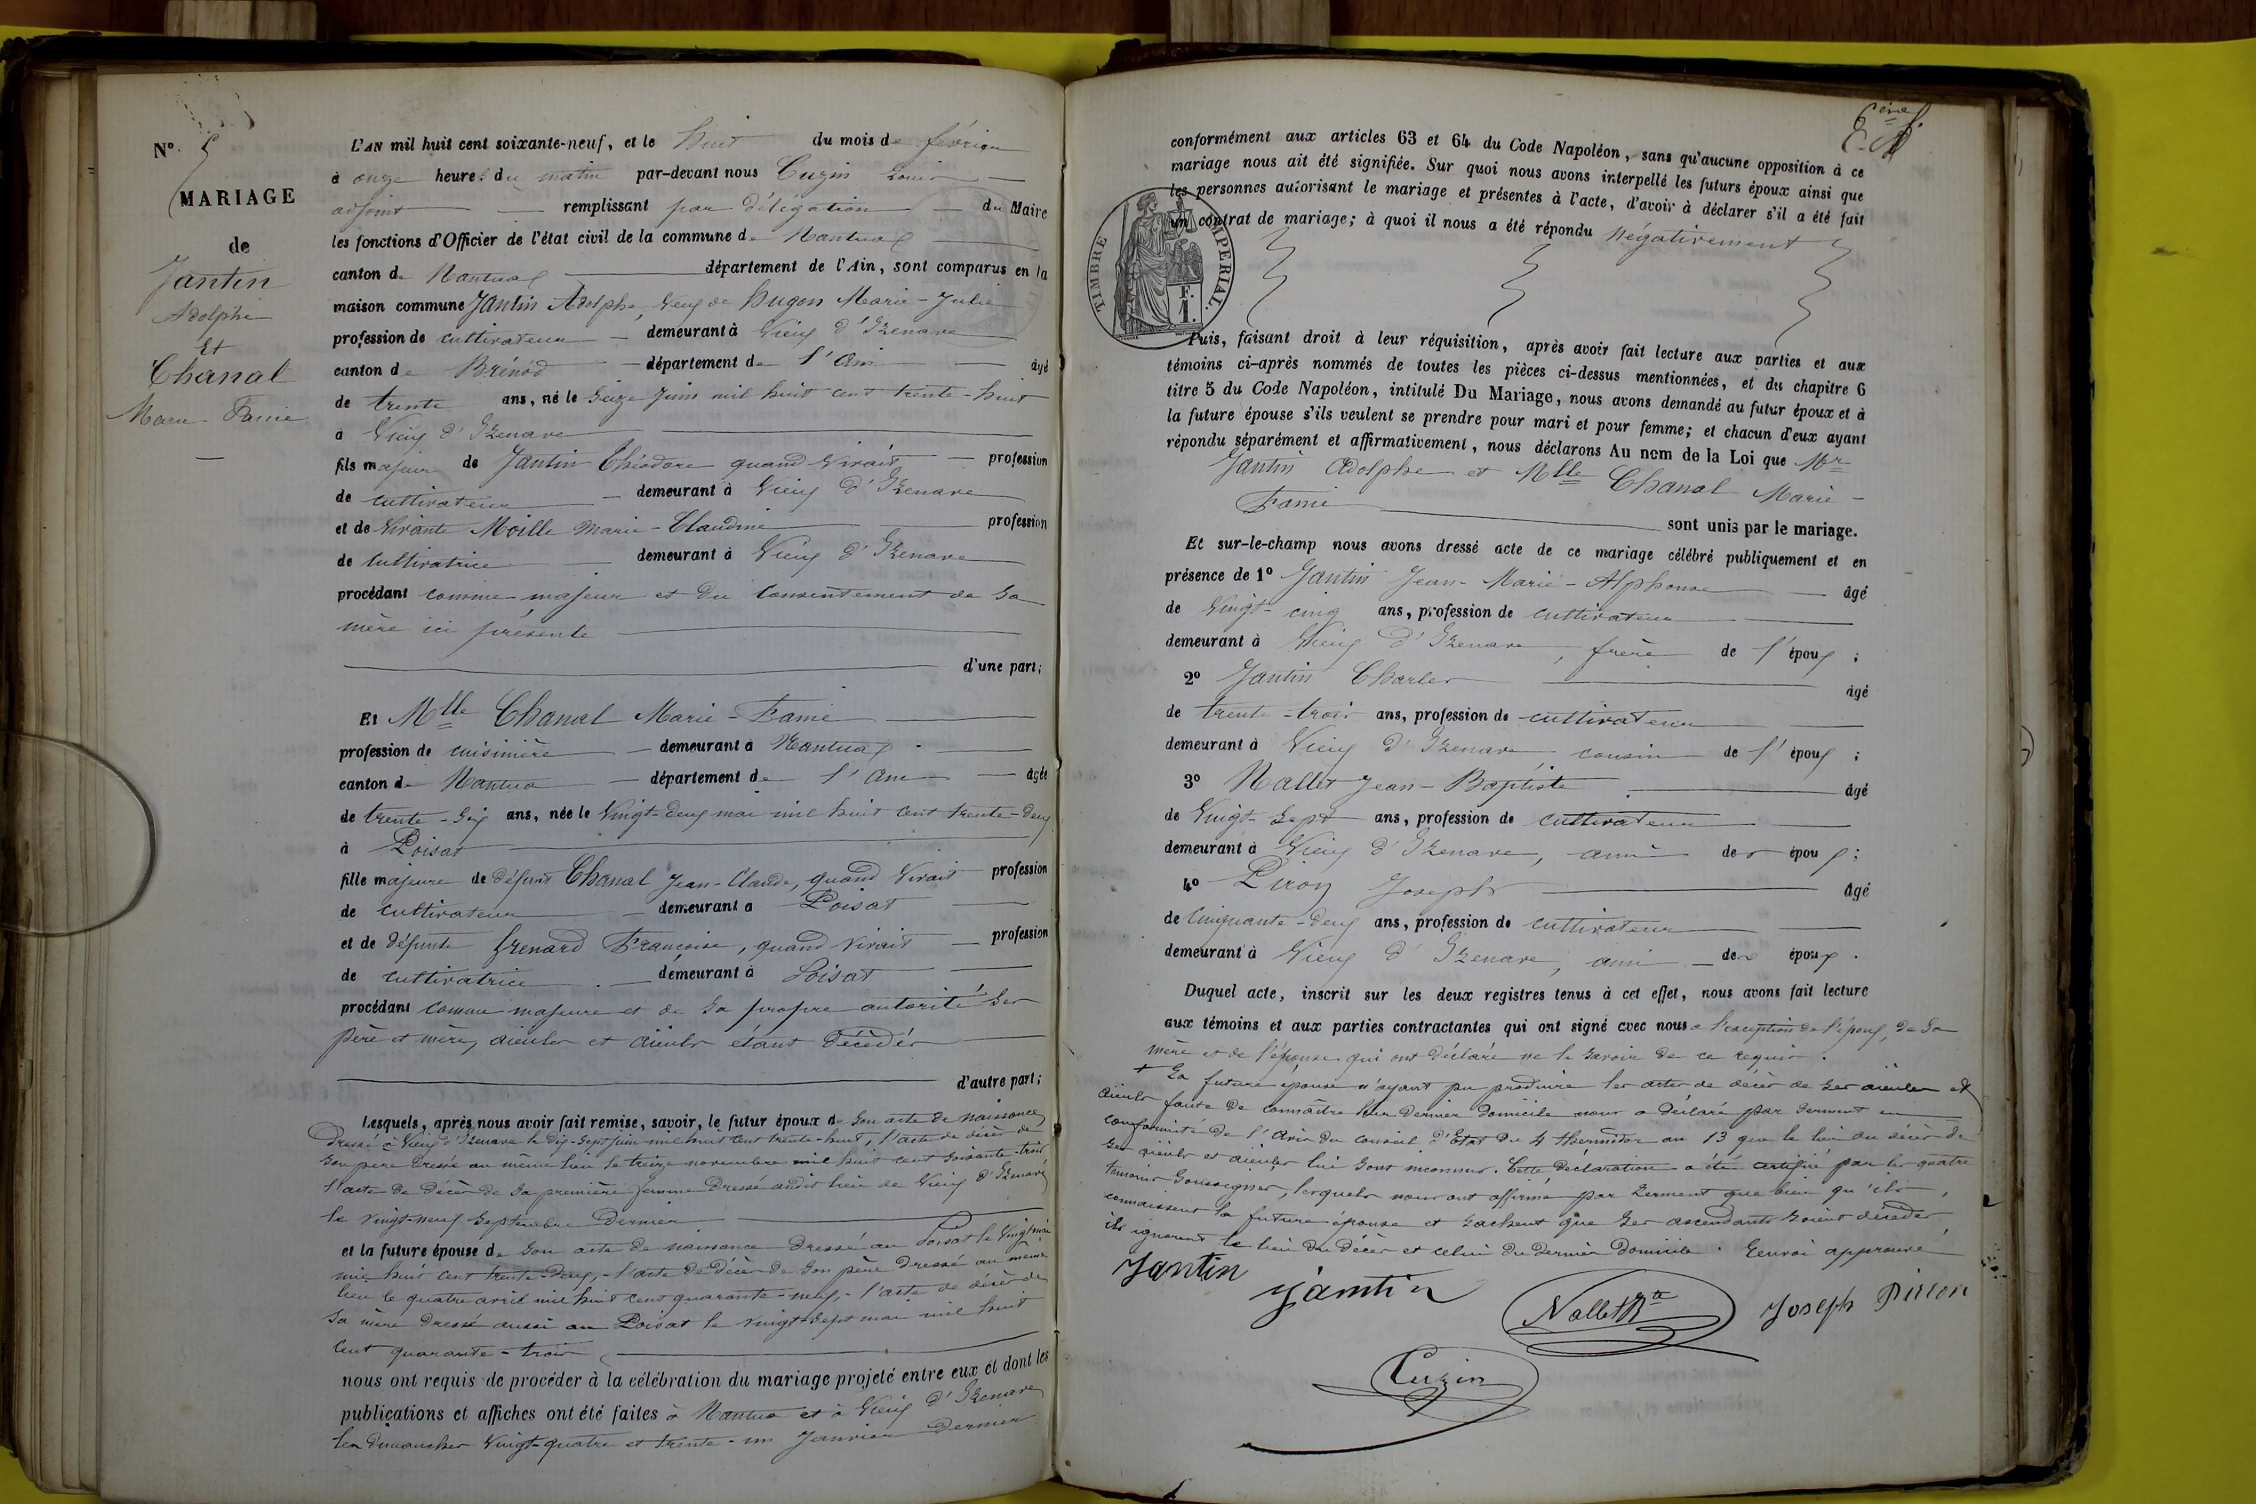 N° 5
MARIAGE
de
Jantin
Adolphe
et
Chanal
Marie-Fanie
L'AN mil huit cent soixante-neuf, et le huit du mois de février
à onze heures du matin par-devant nous Cuzin Louis
adjoint remplissant par délégation du Maire
les fonctions d'Officier de l'état civil de la commune de Nantua
canton de Nantua département de l'Ain, sont comparus en la
maison commune Jantin Adolphe, Veuf de Hugon Marie-Julie
profession de cultivateur demeurant à Vieu d'Izenave
canton de Brénod département de l'Ain âgé
de trente ans, né le Seize Juin mil huit cent trente-huit
à Vieu d'Izenave
fils majeur de Jantin Théodore quand vivait profession
de cultivateur demeurant à Vieu d'Izenave
et de vivante Moille Marie-Claudine profession
de cultivatrice demeurant à Vieu d'Izenave
procédant comme majeur et du consentement de sa
mère ici présente
d'une part;
Et Mlle Chanal Marie-Fanie
profession de cuisinière demeurant à Nantua
canton de Nantua département de l'Ain âgée
de trente-six ans, née le Vingt-deux mai mil huit cent trente-deux
à Poisat
fille majeure de défunt Chanal Jean-Claude, quand vivait profession
de cultivateur demeurant à Poisat
et de défunte Grenard Françoise, quand vivait profession
de cultivatrice demeurant à Poisat
procédant comme majeure et de sa propre autorité ses
père et mère, aieules et aieuls étant décédés
d'autre part;
Lesquels, après nous avoir fait remise, savoir, le futur époux de son acte de naissance
dressé à Vieu d'Izenave le dix-sept juin mil huit cent trente-huit, l'acte de décès de
son père dressé au même lieu le treize novembre mil huit cent soixante-trois
l'acte de décès de sa première femme dressé audit lieu de Vieu d'Izenave
le vingt-neuf Septembre dernier
et la future épouse de son acte de naissance dressé au Poisat le Vingt
mil huit cent trente-deux, l'acte de décès de son père dressé au même
lieu le quatre avril mil huit cent quarante-neuf, l'acte de décès de
sa mère dressé aussi au Poisat le vingt-sept mai mil huit
cent quarante-trois
nous ont requis de procéder à la célébration du mariage projeté entre eux et dont les
publications et affiches ont été faites à Nantua et à Vieu d'Izenave
les dimanches vingt-quatre et trente-un Janvier dernier
6ème f.
conformément aux articles 63 et 64 du Code Napoléon, sans qu'aucune opposition à ce
mariage nous ait été signifiée. Sur quoi nous avons interpellé les futurs époux ainsi que
les personnes autorisant le mariage et présentes à l'acte, d'avoir à déclarer s'il a été fait
un contrat de mariage; à quoi il nous a été répondu Négativement
TIMBRE IMPERIAL.
F.
1.
Puis, faisant droit à leur réquisition, après avoir fait lecture aux parties et aux
témoins ci-après nommés de toutes les pièces ci-dessus mentionnées, et du chapitre 6
titre 5 du Code Napoléon, intitulé Du Mariage, nous avons demandé au futur époux et à
la future épouse s'ils veulent se prendre pour mari et pour femme; et chacun d'eux ayant
répondu séparément et affirmativement, nous déclarons Au nom de la Loi que Mr
Jantin Adolphe et Mlle Chanal Marie-
Fanie
sont unis par le mariage.
Et sur-le-champ nous avons dressé acte de ce mariage célébré publiquement et en
présence de 1° Jantin Jean-Marie-Alphonse âgé
de Vingt-cinq ans, profession de cultivateur
demeurant à Vieu d'Izenave, frère de l'époux;
2° Jantin Charles âgé
de trente-trois ans, profession de cultivateur
demeurant à Vieu d'Izenave cousin de l'époux;
3° Nallet Jean-Baptiste âgé
de Vingt-sept ans, profession de cultivateur
demeurant à Vieu d'Izenave, ami des époux;
4° Piron Joseph âgé
de Cinquante-deux ans, profession de cultivateur
demeurant à Vieu d'Izenave, ami des époux.
Duquel acte, inscrit sur les deux registres tenus à cet effet, nous avons fait lecture
aux témoins et aux parties contractantes qui ont signé avec nous à l'exception de l'époux, de sa
mère et de l'épouse qui ont déclaré ne le savoir de ce requis.
+ La future épouse n'ayant pu produire les actes de décès de ses aieules et
aieuls faute de connaître leur dernier domicile nous a déclaré par serment en
conformité de l'Avis du conseil d'Etat du 4 thermidor an 13 que le lieu du décès de
ses aieuls et aieules lui sont inconnus. Cette déclaration a été certifiée par les quatre
témoins Soussignés, lesquels nous ont affirmé par Serment que bien qu'ils
connaissent la future épouse et sachent que ses ascendants soient décédés
ils ignorent le lieu du décès et celui du dernier domicile. Renvoi approuvé
Jantin
Jantin
Nallet Bte
Joseph Pirron
Cuzin